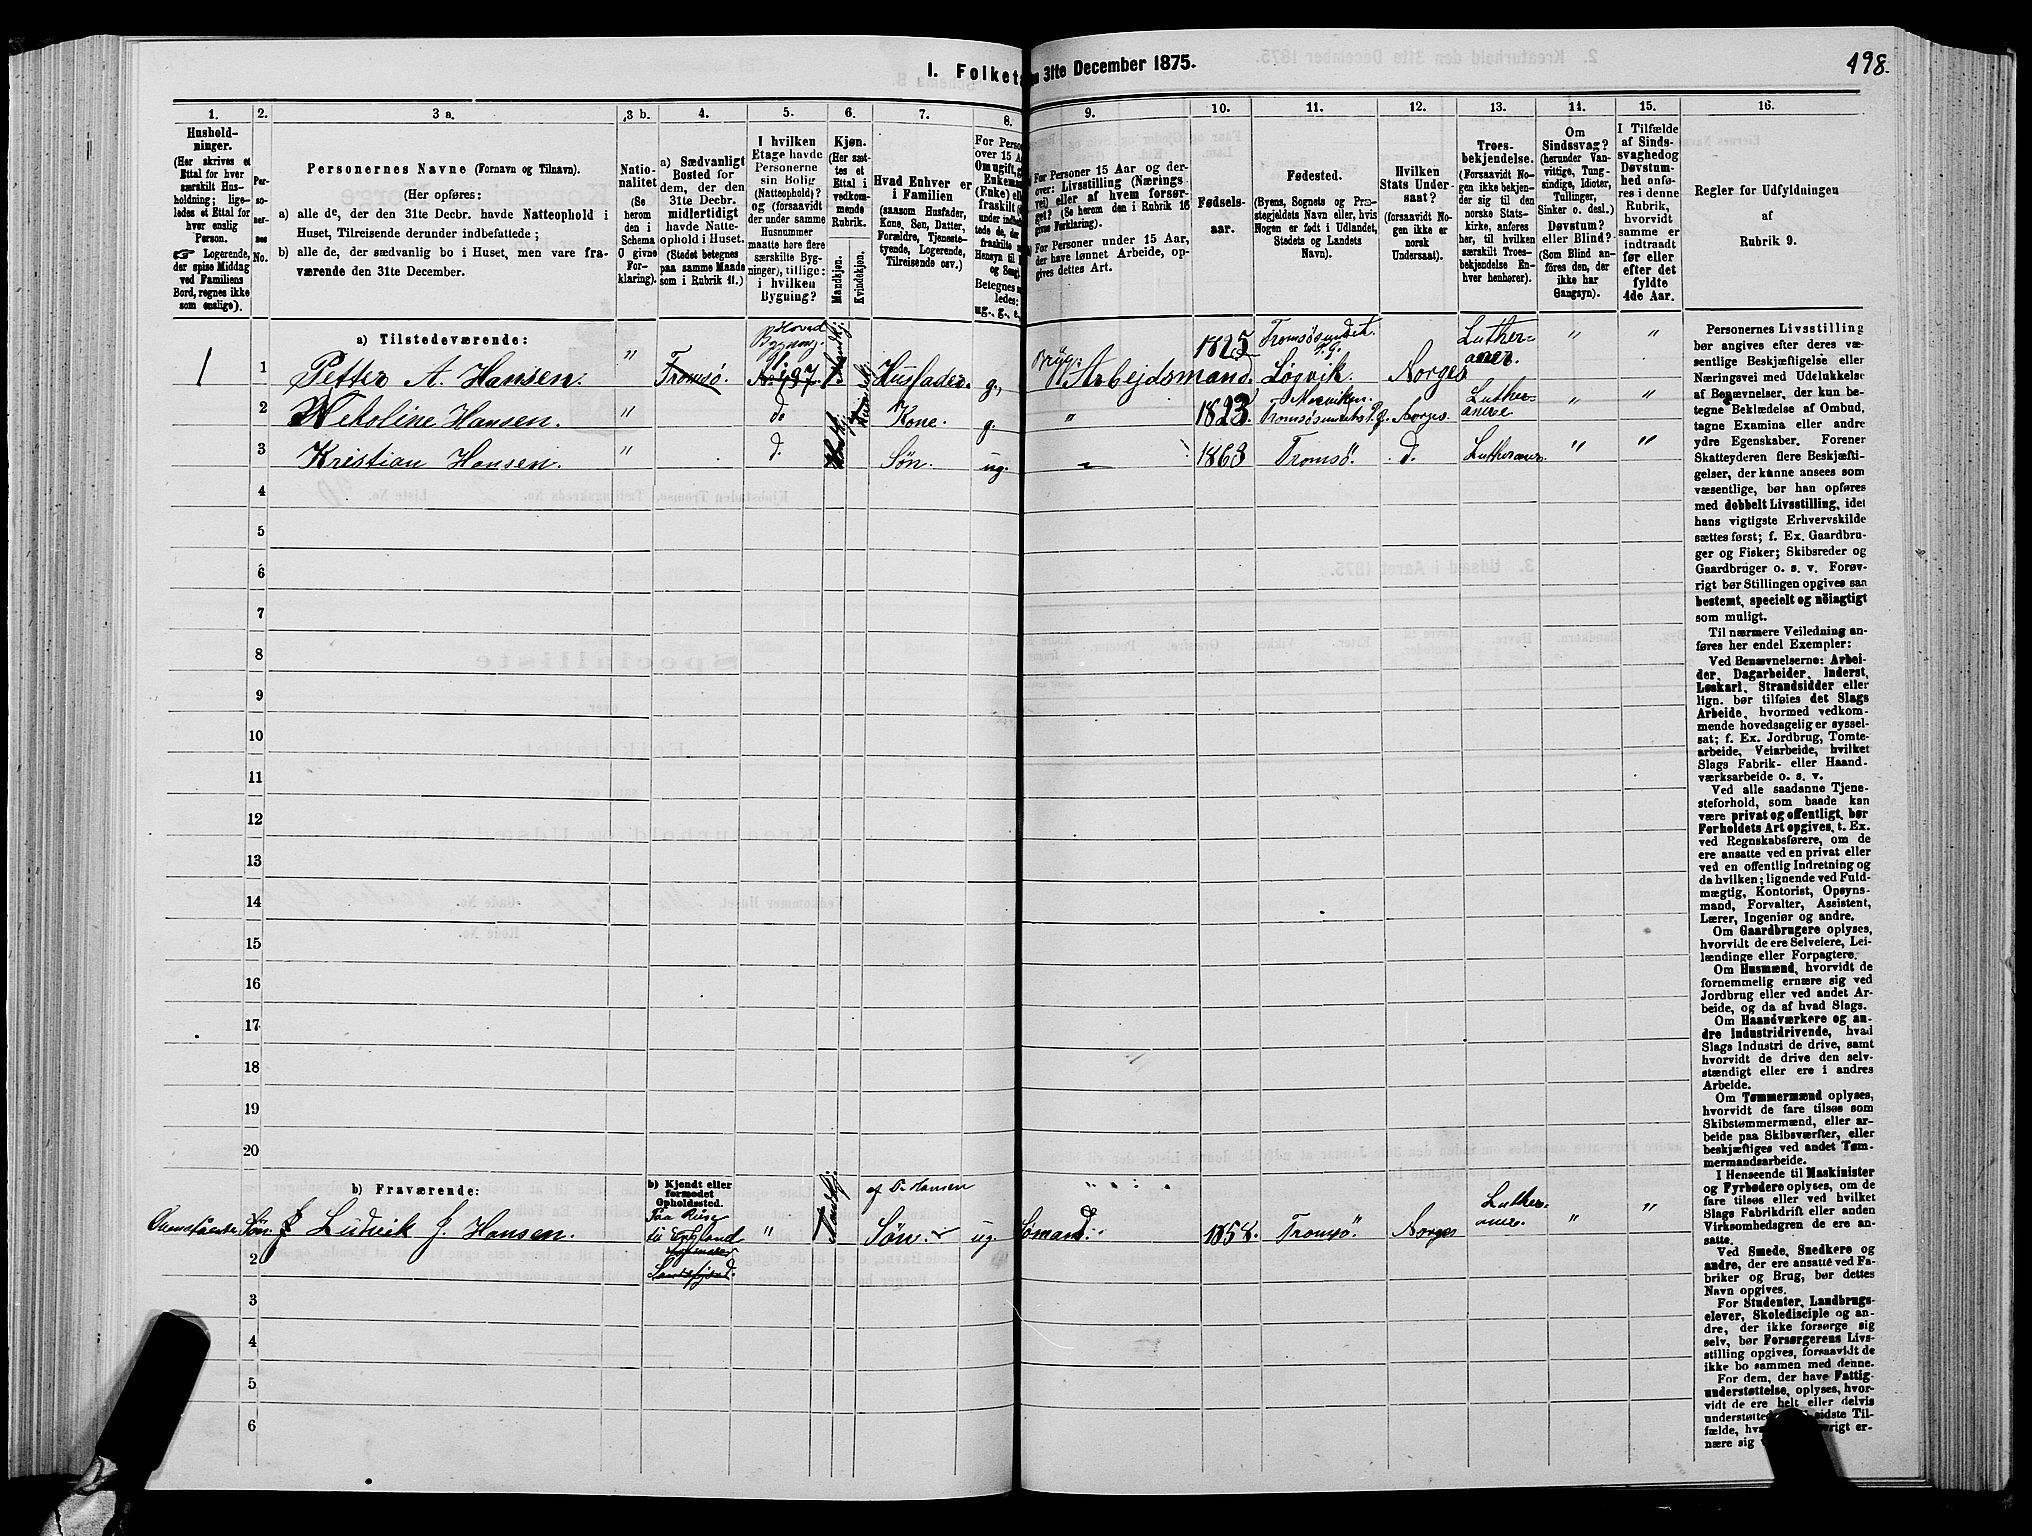 I. Folket n 31te December 1875.
198.
1. 2. 3 a. 3 b. 4. 5. 6. 7. 8. 9. 10. 11. 12. 13. 14. 15. 16.
Hushold-
ninger.
(Her skrives et
Ettal for hver
særskilt Hus-
holdning; lige-
ledes et Ettal for
hver enslig
Person.
Logerende,
der spise Middag
ved Familiens
Bord, regnes ikke
som enslige).
Per-
so-
ner-
nes
No.
Personernes Navne (Fornavn og Tilnavn).
(Her opføres:
a) alle de, der den 31te Decbr. havde Natteophold i
Huset, Tilreisende derunder indbefattede;
b) alle de, der sædvanlig bo i Huset, men vare fra-
værende den 31te December.
Natio-
nalitet
(Se
herom
den i
Schema
O givne
For-
klaring).
a) Sædvanligt
Bosted for
dem, der den
31te Decbr.
midlertidigt
havde Natte-
ophold i Huset.
(Stedet betegnes
paa samme Maade
som i Rubrik 11.)
I hvilken
Etage havde
Personerne
sin Bolig
(Natteophold)?
og (forsaavidt
der under samme
Husnummer
maatte høre flere
særskilte Byg-
ninger), tillige:
i hvilken
Bygning?
Kjøn.
(Her sæt-
tes et
Ettal i
vedkom-
mende
Rubrik.
Mandkjøn.
Kvindekjøn.
Hvad Enhver er
i Familien
(saasom Husfader,
Kone, Søn, Datter,
Forældre, Tjeneste-
tyende, Logerende,
Tilreisende osv.)
For Perso
over 15 A
Om ugift, g
Enkeman
(Enke) el
fraskilt
under indb
tede de, d
fraskilte
Hensyn til
og Seng
Betegnes
ledes:
ug., g., e.
For Personer 15 Aar og der-
over: Livsstilling (Nærings-
vei) eller af hvem forsør-
get? (Se herom den i Rubrik 16
givne Forklaring).
For Personer under 15 Aar,
der have lønnet Arbeide, op-
gives dettes Art.
Fødsels-
aar.
Fødested.
(Byens, Sognets og Præ-
stegjeldets Navn eller, hvis
Nogen er født i Udlandet,
Stedets og Landets
Navn).
Hvilken
Stats Under-
saat?
(forsaavidt No-
gen ikke er
norsk
Undersaat).
Troes-
bekjendelse.
(Forsaavidt No-
gen ikke bekjen-
der sig til den
norske Stats-
kirke, anføres
her, til hvilken
Troesbekjendelse En-
hver henhører).
Om
Sindssvag?
(herunder Van-
vittige, Tung-
sindige, Idioter,
Tullinger,
Sinker o. desl.)
Døvstum?
eller Blind?
(Som Blind an-
føres den, der
ikke har
Gangsyn).
I Tilfælde
af Sinds-
svaghed og
Døvstum-
hed anfø-
res i denne
Rubrik,
hvorvidt
samme er
indtraadt
før eller
efter det
fyldte
4de Aar.
Regler for Udfyldningen
af
Rubrik 9.
a) Tilstedeværende:
1 1 Petter A. Hansen. " Tromsø. Hoved Bygning. No 197. Husfader. g. Arbejdsmand. 1825 Tromsøsundet P.G. Løgvik. Norges Lutheraner. " "
2 Nikoline Hansen. " do Kone. g. " 1823. Tromsøsundets P.G. Norges Lutheraner " "
3 Kristian Hansen. " d. Søn. ug. 1863 Tromsø. d. Lutheraner. " "
4
5
6
7
8
9
10
11
12
13
14
15
16
17
18
19
20
b) Fraværende:
b) Kjendt eller
formodet
Opholdsted.
Søn Ludvik J. Hansen. Paa Reise til England Sandefjord. " af P. Hansen Søn. ug. Sømand. 1858. Tromsø. Norges Lutheraner. " "
2
3
4
5
6
Personernes Livsstilling
bør angives efter deres væ-
sentlige Beskjæftigelse eller
Næringsvei med Udelukkelse
af Benævnelser, der kun be-
tegne Beklædelse af Ombud,
tagne Examina eller andre
ydre Egenskaber. Forener
Skatteyderen flere Beskjæfti-
gelser, der kunne ansees som
væsentlige, bør han opføres
med dobbelt Livsstilling, idet
hans vigtigste Erhvervskilde
sættes først; f. Ex. Gaardbru-
ger og Fisker; Skibsreder og
Gaardbruger o. s. v. Forøv-
rigt bør Stillingen opgives saa
bestemt, specielt og nøiagtigt
som muligt.
Til nærmere Veiledning an-
føres her endel Exempler:
Ved Benævnelserne: Arbei-
der, Dagarbeider, Inderst,
Løskarl, Strandsidder eller
lign. bør tilføies det Slags
Arbeide, hvormed vedkom-
mende hovedsagelig er syssel-
sat; f. Ex. Jordbrug, Tomte-
arbeide, Veiarbeide, hvilket
Slags Fabrik- eller Haand-
værksarbeide o. s. v.
Ved alle saadanne Tjene-
steforhold, som baade kan
være privat og offentligt, bør
Forholdets Art opgives, t. Ex.
ved Regnskabsførere, om de
ere ansatte ved en privat eller
ved en offentlig Indretning og
da hvilken; lignende ved Fuld-
mægtig, Kontorist, Opsyns-
mand, Forvalter, Assistent,
Lærer, Ingeniør og andre.
Om Gaardbrugere oplyses,
hvorvidt de ere Selveiere, Lei-
lændinge eller Forpagtere.
Om Husmænd, hvorvidt de
fornemmelig ernære sig ved
Jordbrug eller ved andet Ar-
beide, og da af hvad Slags.
Om Haandværkere og an-
dre Industridrivende, hvad
Slags Industri de drive, samt
hvorvidt de drive den selv-
stændigt eller ere i andres
Arbeide.
Om Tømmermænd oplyses,
hvorvidt de fare tilsøs som
Skibstømmermænd, eller ar-
beide paa Skibsværfter, eller
beskjæftiges ved andet Tøm-
mermandsarbeide.
I Henseende til Maskinister
og Fyrbødere oplyses, om de
fare tilsøs eller ved hvilket
Slags Fabrikdrift eller anden
Virksomhedsgren de ere an-
satte.
Ved Smede, Snedkere og
andre, der ere ansatte ved Fa-
briker og Brug, bør dettes
Navn opgives.
For Studenter, Landbrugs-
elever, Skoledisciple og an-
dre, der ikke forsørge sig
selv, bør Forsørgerens Livs-
stilling opgives, forsaavidt de
ikke bo sammen med denne.
For dem, der have Fattig-
understøttelse, oplyses, hvor-
vidt de ere helt eller delvis
understøttede sidste Til-
fælde, hv rigt er-
nære sig